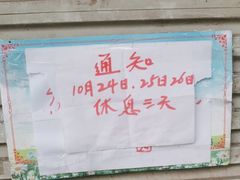 通知
10月24日、25日26日
休息三天